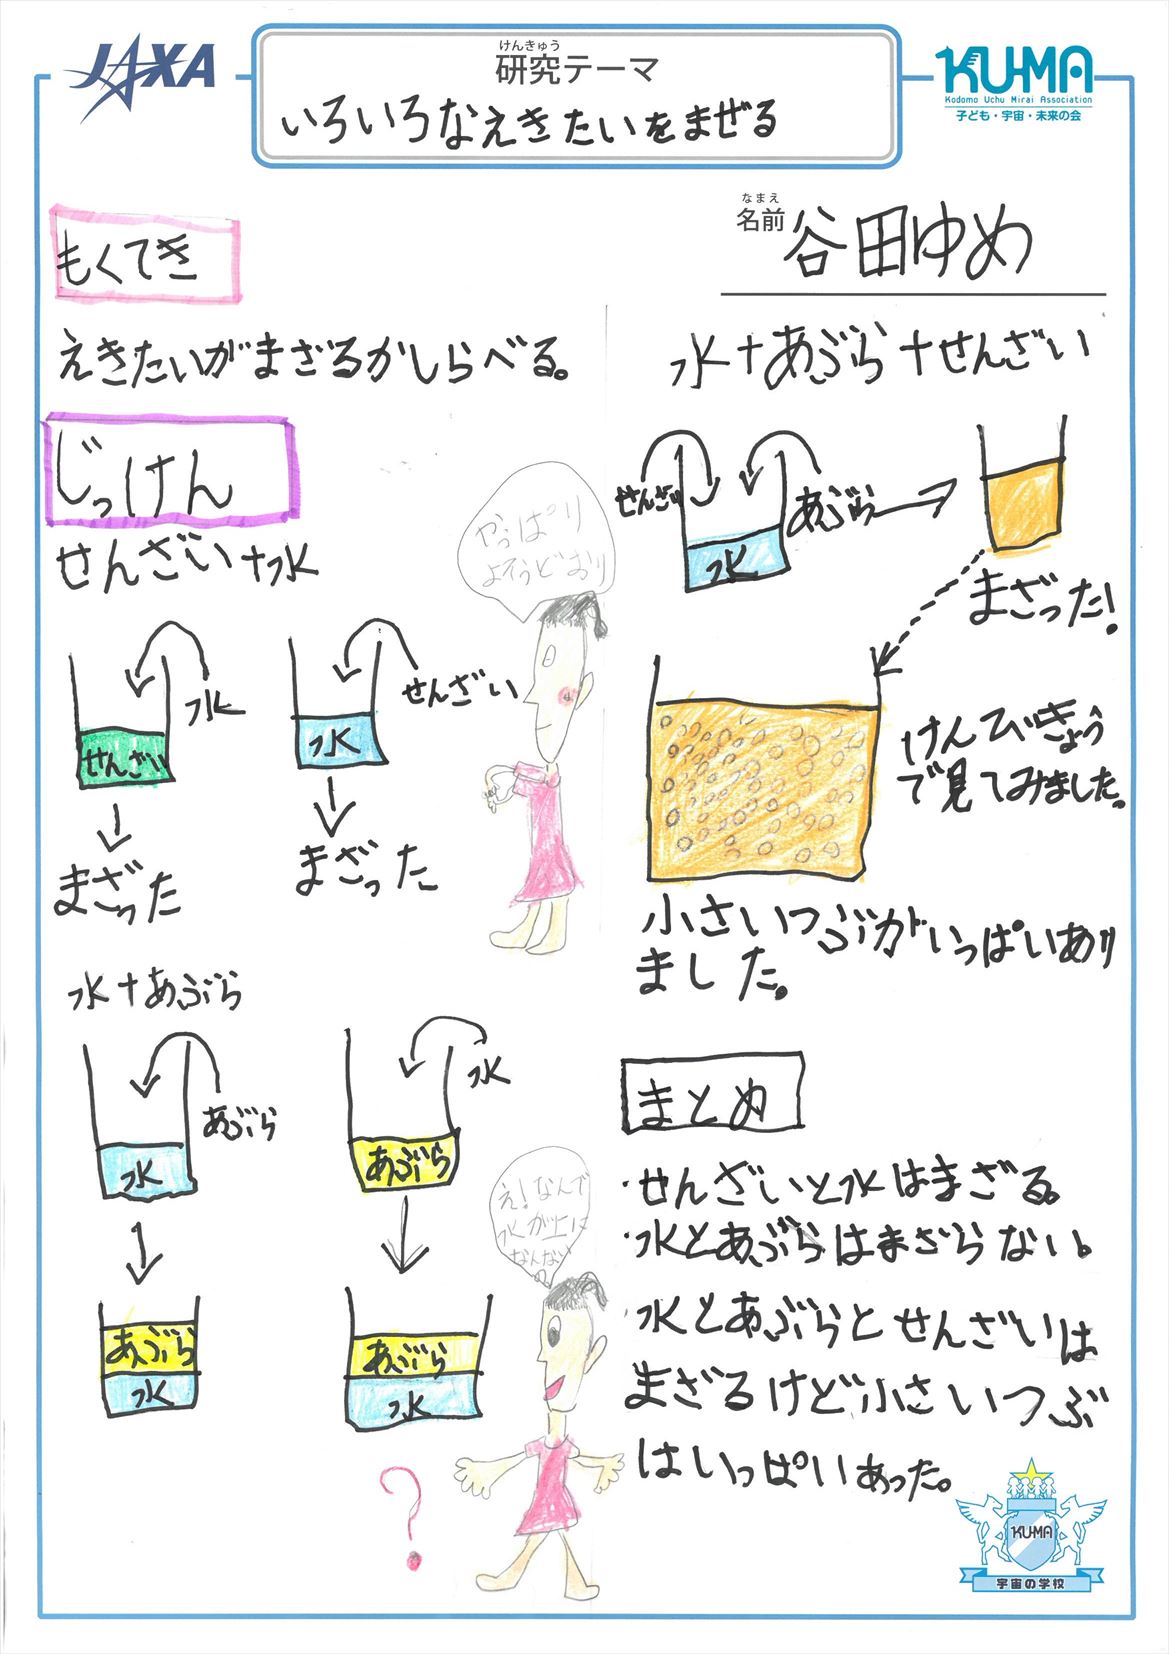 JAXA
けんきゅう
研究テーマ
いろいろなえきたいをまぜる
KU-MA
Kodomo Uchu Mirai Association
子ども・宇宙・未来の会
なまえ
名前 谷田ゆめ
もくてき
えきたいがまざるかしらべる。
じっけん
せんざい+水
水
せんざい
まざった
せんざい
水
まざった
やっぱり
よそうどおり
水+あぶら
あぶら
水
あぶら
水
水
あぶら
あぶら
水
え!なんで
水が上に
なんない
の
?
水+あぶら+せんざい
せんざい
あぶら
水
まざった!
けんびきょう
で見てみました。
小さいつぶがいっぱいあり
ました。
まとめ
・せんざいと水はまざる。
・水とあぶらはまざらない。
・水とあぶらとせんざいは
まざるけど小さいつぶ
はいっぱいあった。
KU-MA
宇宙の学校